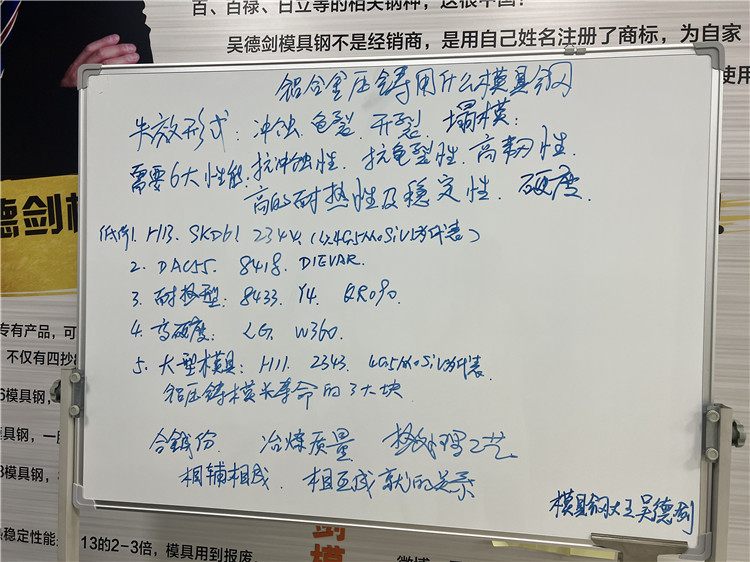 百、百禄、日立等的相关钢种，这很中国！
吴德剑模具钢不是经销商，是用自己姓名注册了商标，为自家
使用
铝合金压铸用什么模具钢
失效形式：冲蚀、龟裂、开裂、塌模：
需要6大性能、抗冲蚀性、抗龟裂性、高韧性、
高的耐热性及稳定性、硬度
1. H13. SKD61 2344.
2. DAC55. 8418. DIEVAR.
3. 耐热型：8433. Y4. QRO90.
4. 高硬度：LG. W360.
5. 大型模具：H11. 2343. 4Cr5MoSiV为代表.
铝压铸模长寿命的3大块
合金成份 冶炼质量 热处理工艺
相辅相成、相互成就的关系
模具钢大王吴德剑
德剑模
专有产品，可
不仅有四抄
模具钢，一
模具钢，
稳定性能
13的2-3倍，模具用到报废。
剑
模
微博